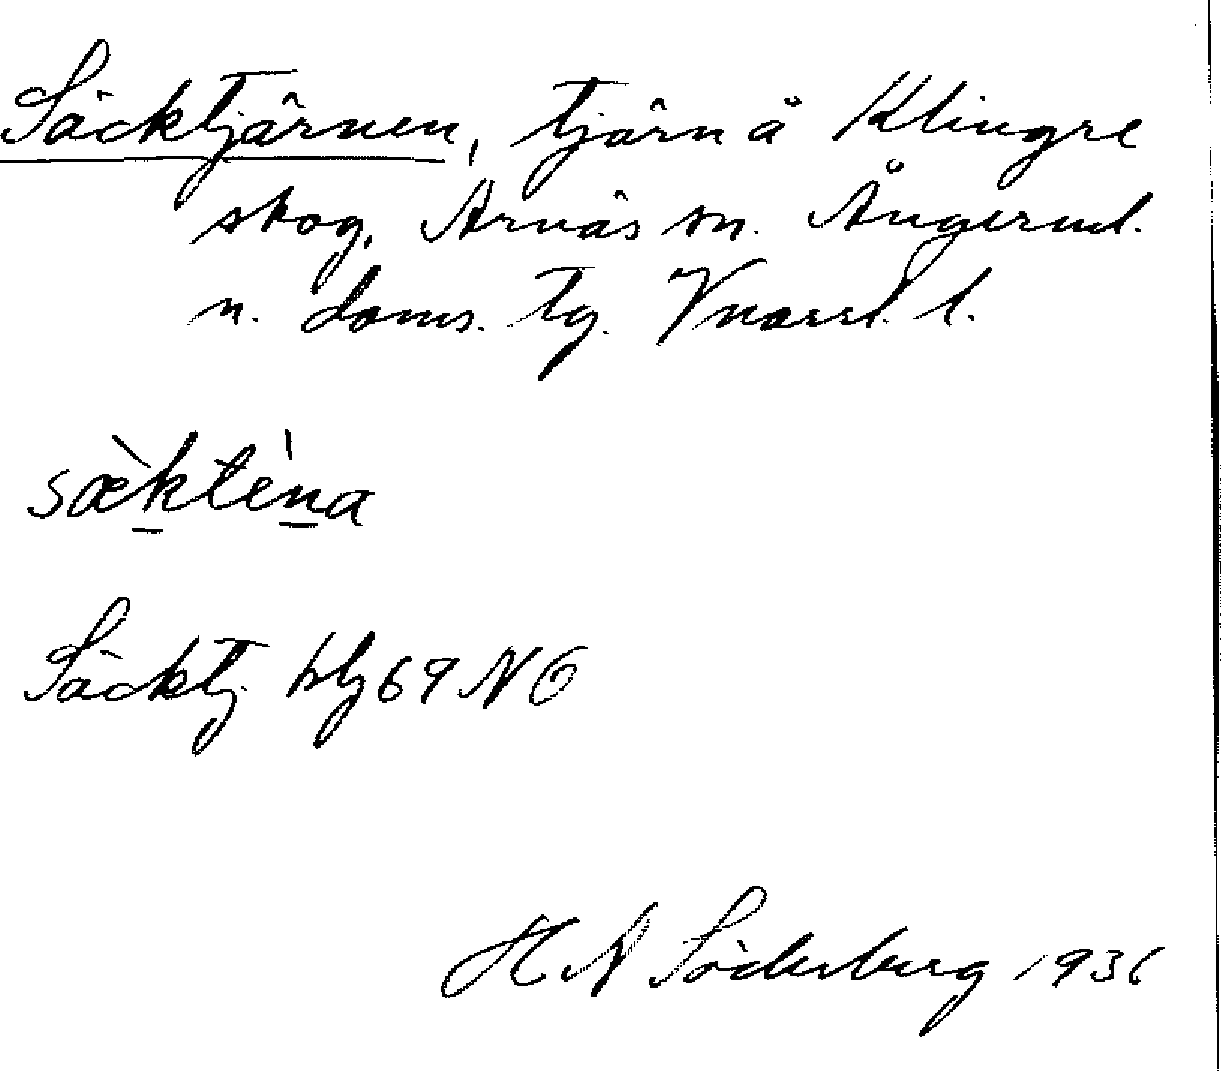 Säcktjärnen, tjärn å Klingre
skog, Arnäs sn. Ångerml.
n. doms. tg. Vnorrl. l.
sæ̀ktèna
Säcktj. blg 69 NO
H N Söderberg 1936